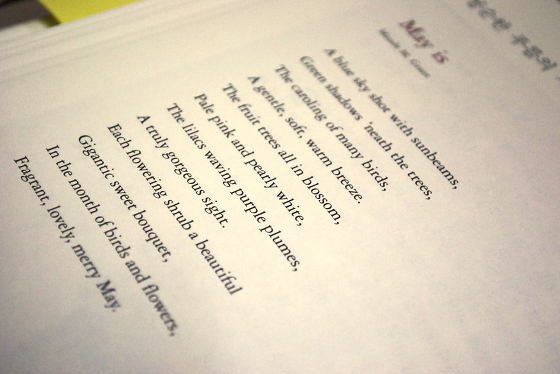 May is
A blue sky shot with sunbeams,
Green shadows 'neath the trees,
The caroling of many birds,
A gentle, soft, warm breeze.
The fruit trees all in blossom,
Pale pink and pearly white,
The lilacs waving purple plumes,
A truly gorgeous sight.
Each flowering shrub a beautiful
Gigantic sweet bouquet,
In the month of birds and flowers,
Fragrant, lovely, merry May.